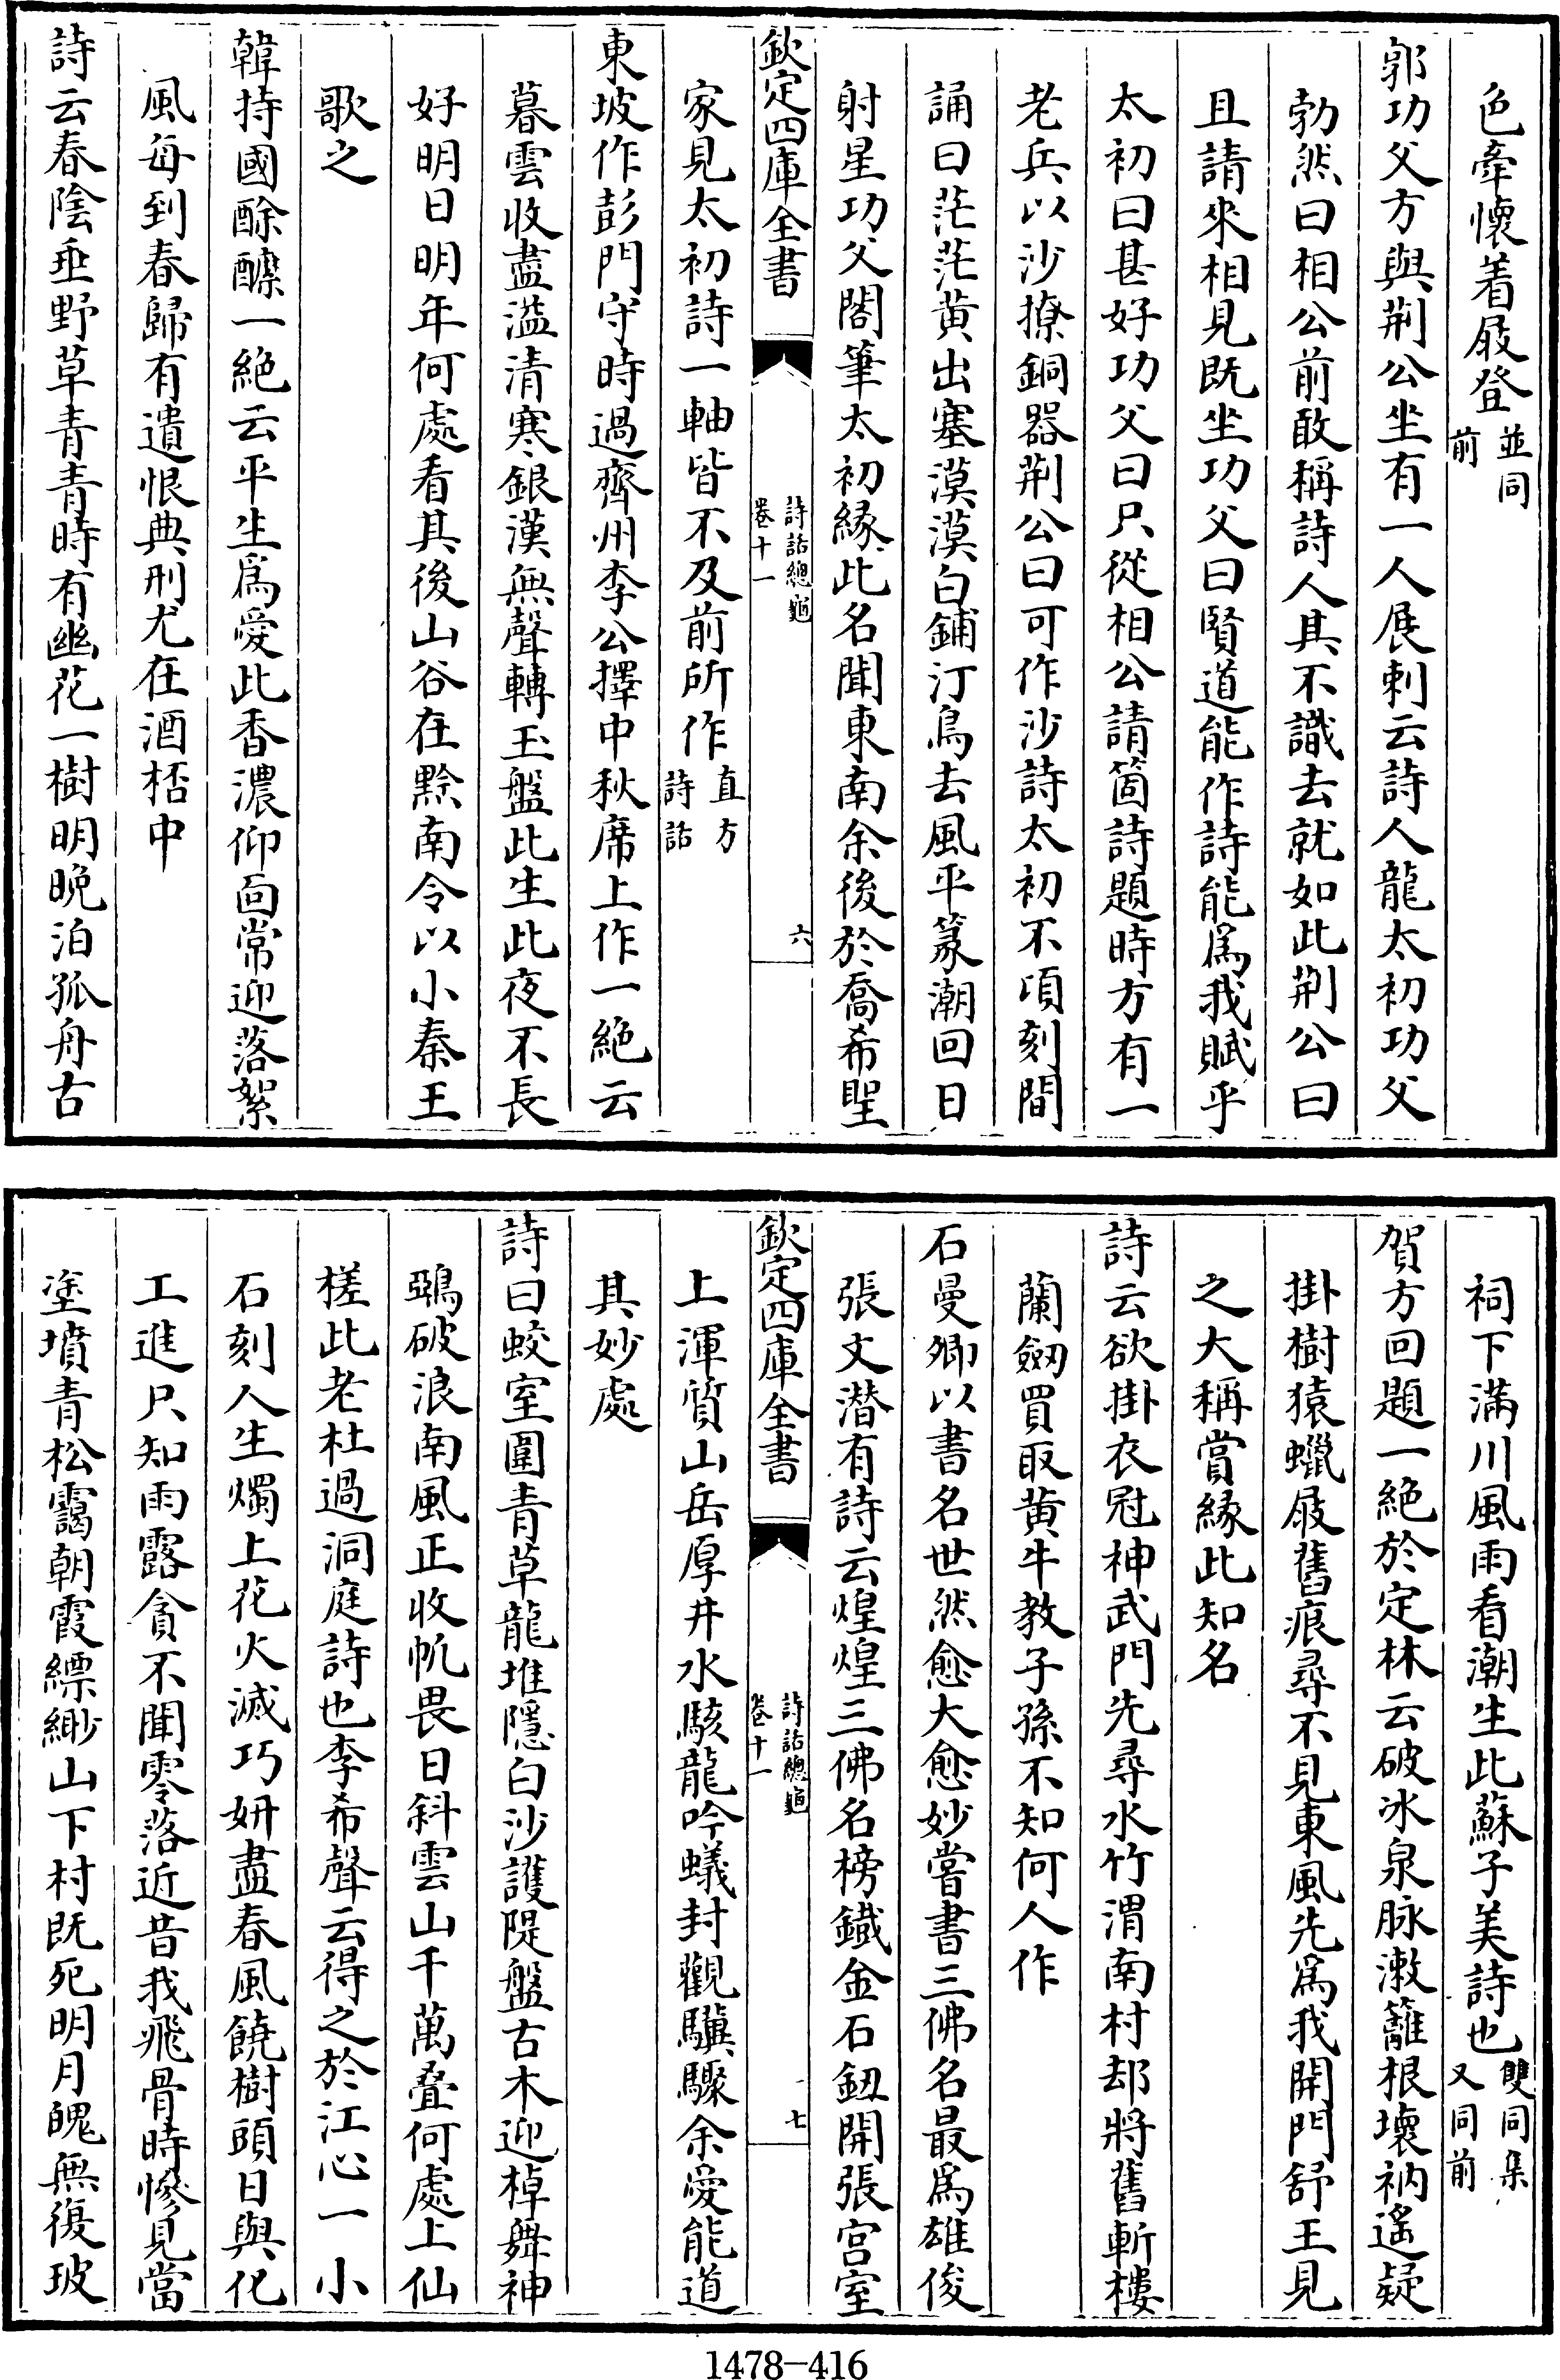 色牽懷着屐登並同前
郭功父方與荆公坐有一人展刺云詩人龍太初功父
勃然曰相公前敢稱詩人其不識去就如此荆公曰
且請來相見既坐功父曰賢道能作詩能爲我賦乎
太初曰甚好功父曰只從相公請箇詩題時方有一
老兵以沙擦銅器荆公曰可作沙詩太初不頃刻間
誦曰茫茫黄出塞漠漠白鋪汀鳥去風平篆潮回日
射星功父閣筆太初緣此名聞東南余後於喬希聖
欽定四庫全書
詩話總龜
卷十一
六
家見太初詩一軸皆不及前所作直方詩話
東坡作彭門守時過齊州李公擇中秋席上作一絶云
暮雲收盡溢清寒銀漢無聲轉玉盤此生此夜不長
好明日明年何處看其後山谷在黔南令以小秦王
歌之
韓持國酴醿一絶云平生爲愛此香濃仰面常迎落絮
風每到春歸有遺恨典刑尤在酒桮中
詩云春陰垂野草青青時有幽花一樹明晚泊孤舟古
祠下滿川風雨看潮生此蘇子美詩也雙同集又同前
賀方回題一絶於定林云破冰泉脉漱籬根壞衲遙疑
掛樹猿蠟屐舊痕尋不見東風先爲我開門舒王見
之大稱賞緣此知名
詩云欲掛衣冠神武門先尋水竹渭南村却將舊斬樓
蘭劒買取黄牛教子孫不知何人作
石曼卿以書名世然愈大愈妙嘗書三佛名最爲雄俊
張文潜有詩云煌煌三佛名榜鐡金石鈕開張宫室
欽定四庫全書
詩話總龜
卷十一
七
上渾質山岳厚井水駭龍吟蟻封觀驥驟余愛能道
其妙處
詩曰蛟室圍青草龍堆隱白沙護隄盤古木迎棹舞神
鵶破浪南風正收㠶畏日斜雲山千萬疊何處上仙
槎此老杜過洞庭詩也李希聲云得之於江心一小
石刻人生燭上花火滅巧妍盡春風饒樹頭日與化
工進只知雨露貪不聞零落近昔我飛骨時慘見當
塗墳青松靄朝霞縹緲山下村既死明月魄無復玻
1478-416